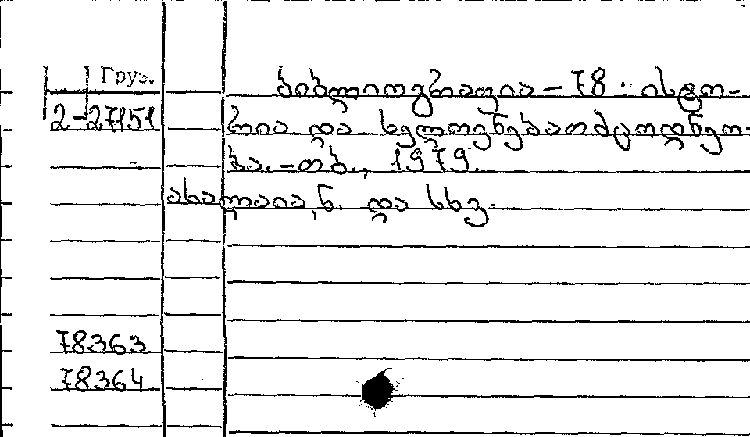 Груз.
ბიბლიოგრაფია – 78 : ისტო-
2-27151
რია და ხელოვნებათმცოდნეო-
ბა. - თბ., 1979.
ახალაია, ნ. და სხვ.
78363
78364